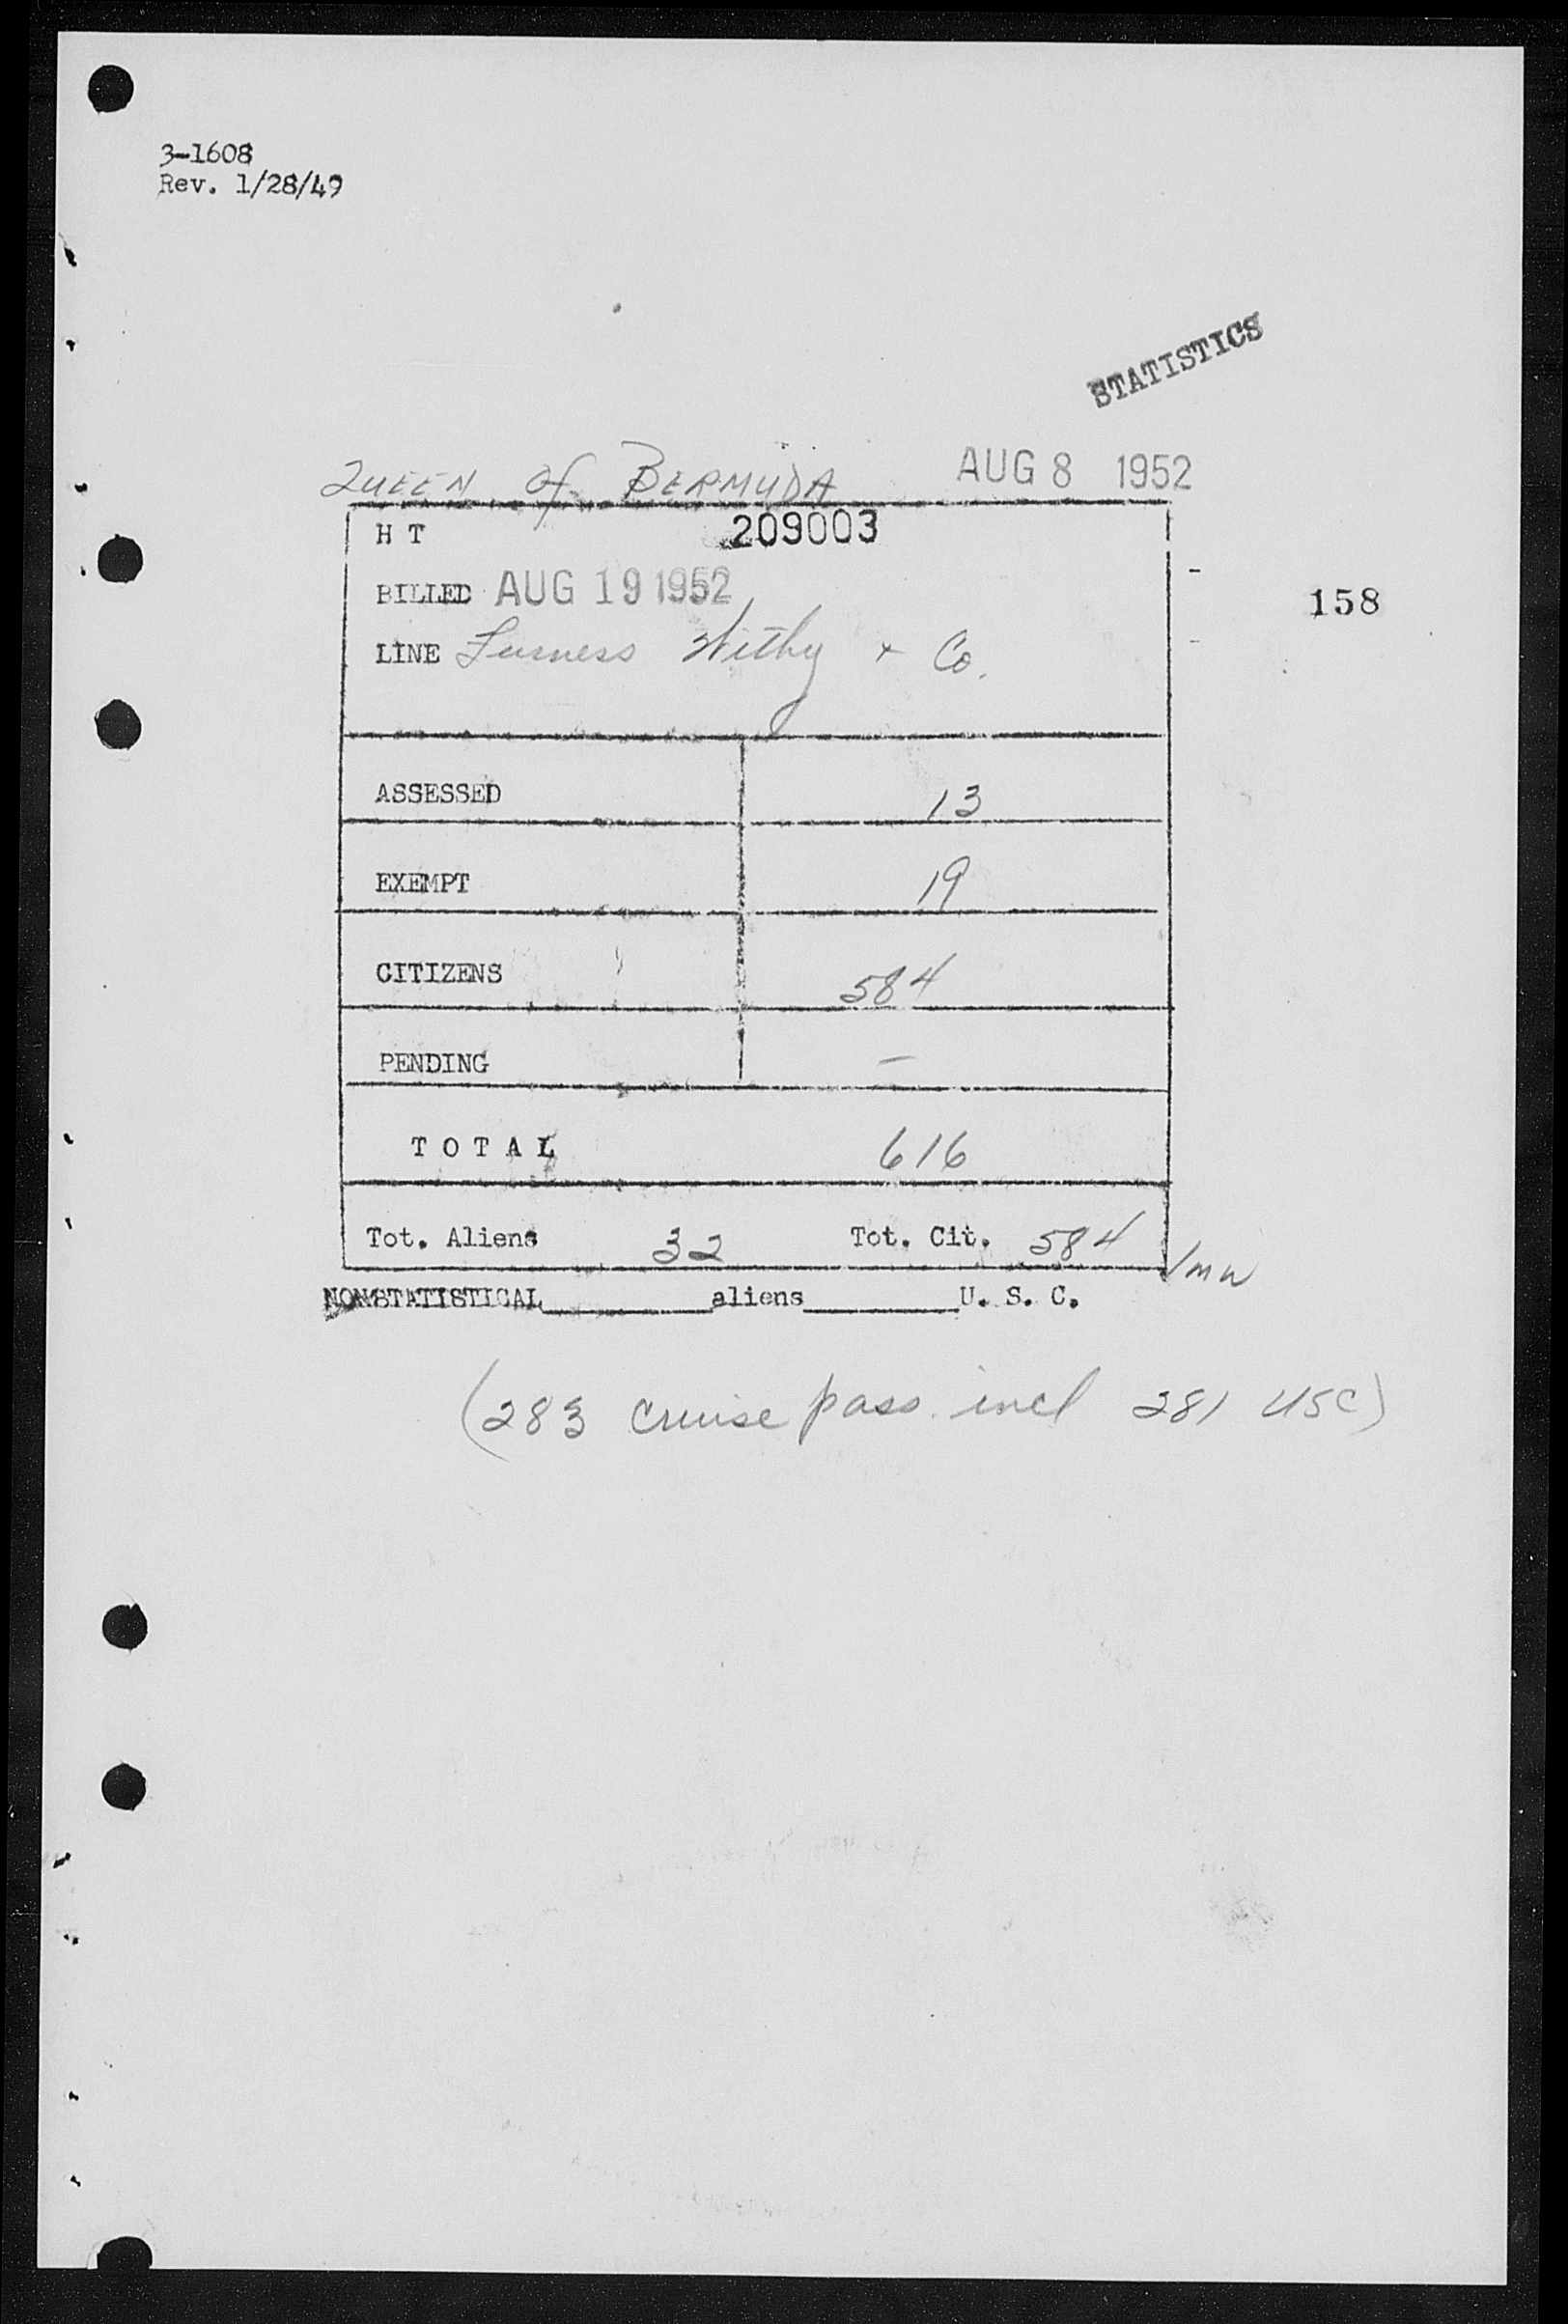 3-1608
Rev. 1/28/49
STATISTICS
QUEEN of BERMUDA AUG 8 1952
H T 209003
BILLED AUG 19 1952
158
LINE Furness Withy & Co.
ASSESSED 13
EXEMPT 19
CITIZENS 584
PENDING —
TOTAL 616
Tot. Aliens 32 Tot. Cit. 584
NONSTATISTICAL aliens U. S. C.
(283 cruise pass. incl 281 USC)